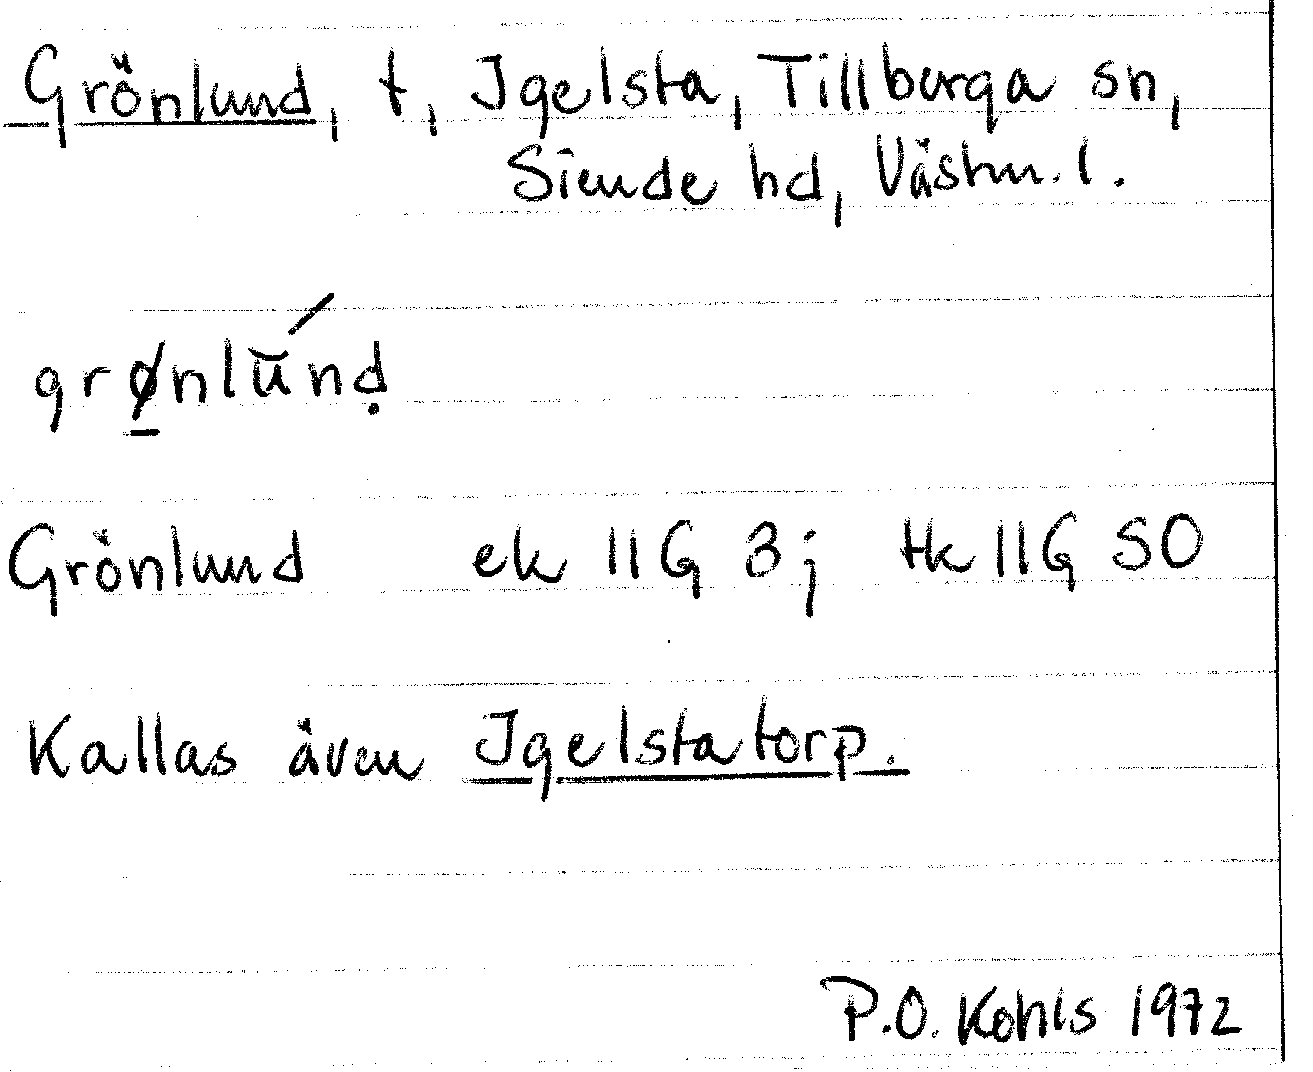 Grönlund, t, Igelsta, Tillberga sn,
Siende hd, Västm. l.
grø̱nlŭ́nḍ
Grönlund ek 11G 3; tk 11G SO
Kallas även Igelstatorp.
P.O. Kohls 1972